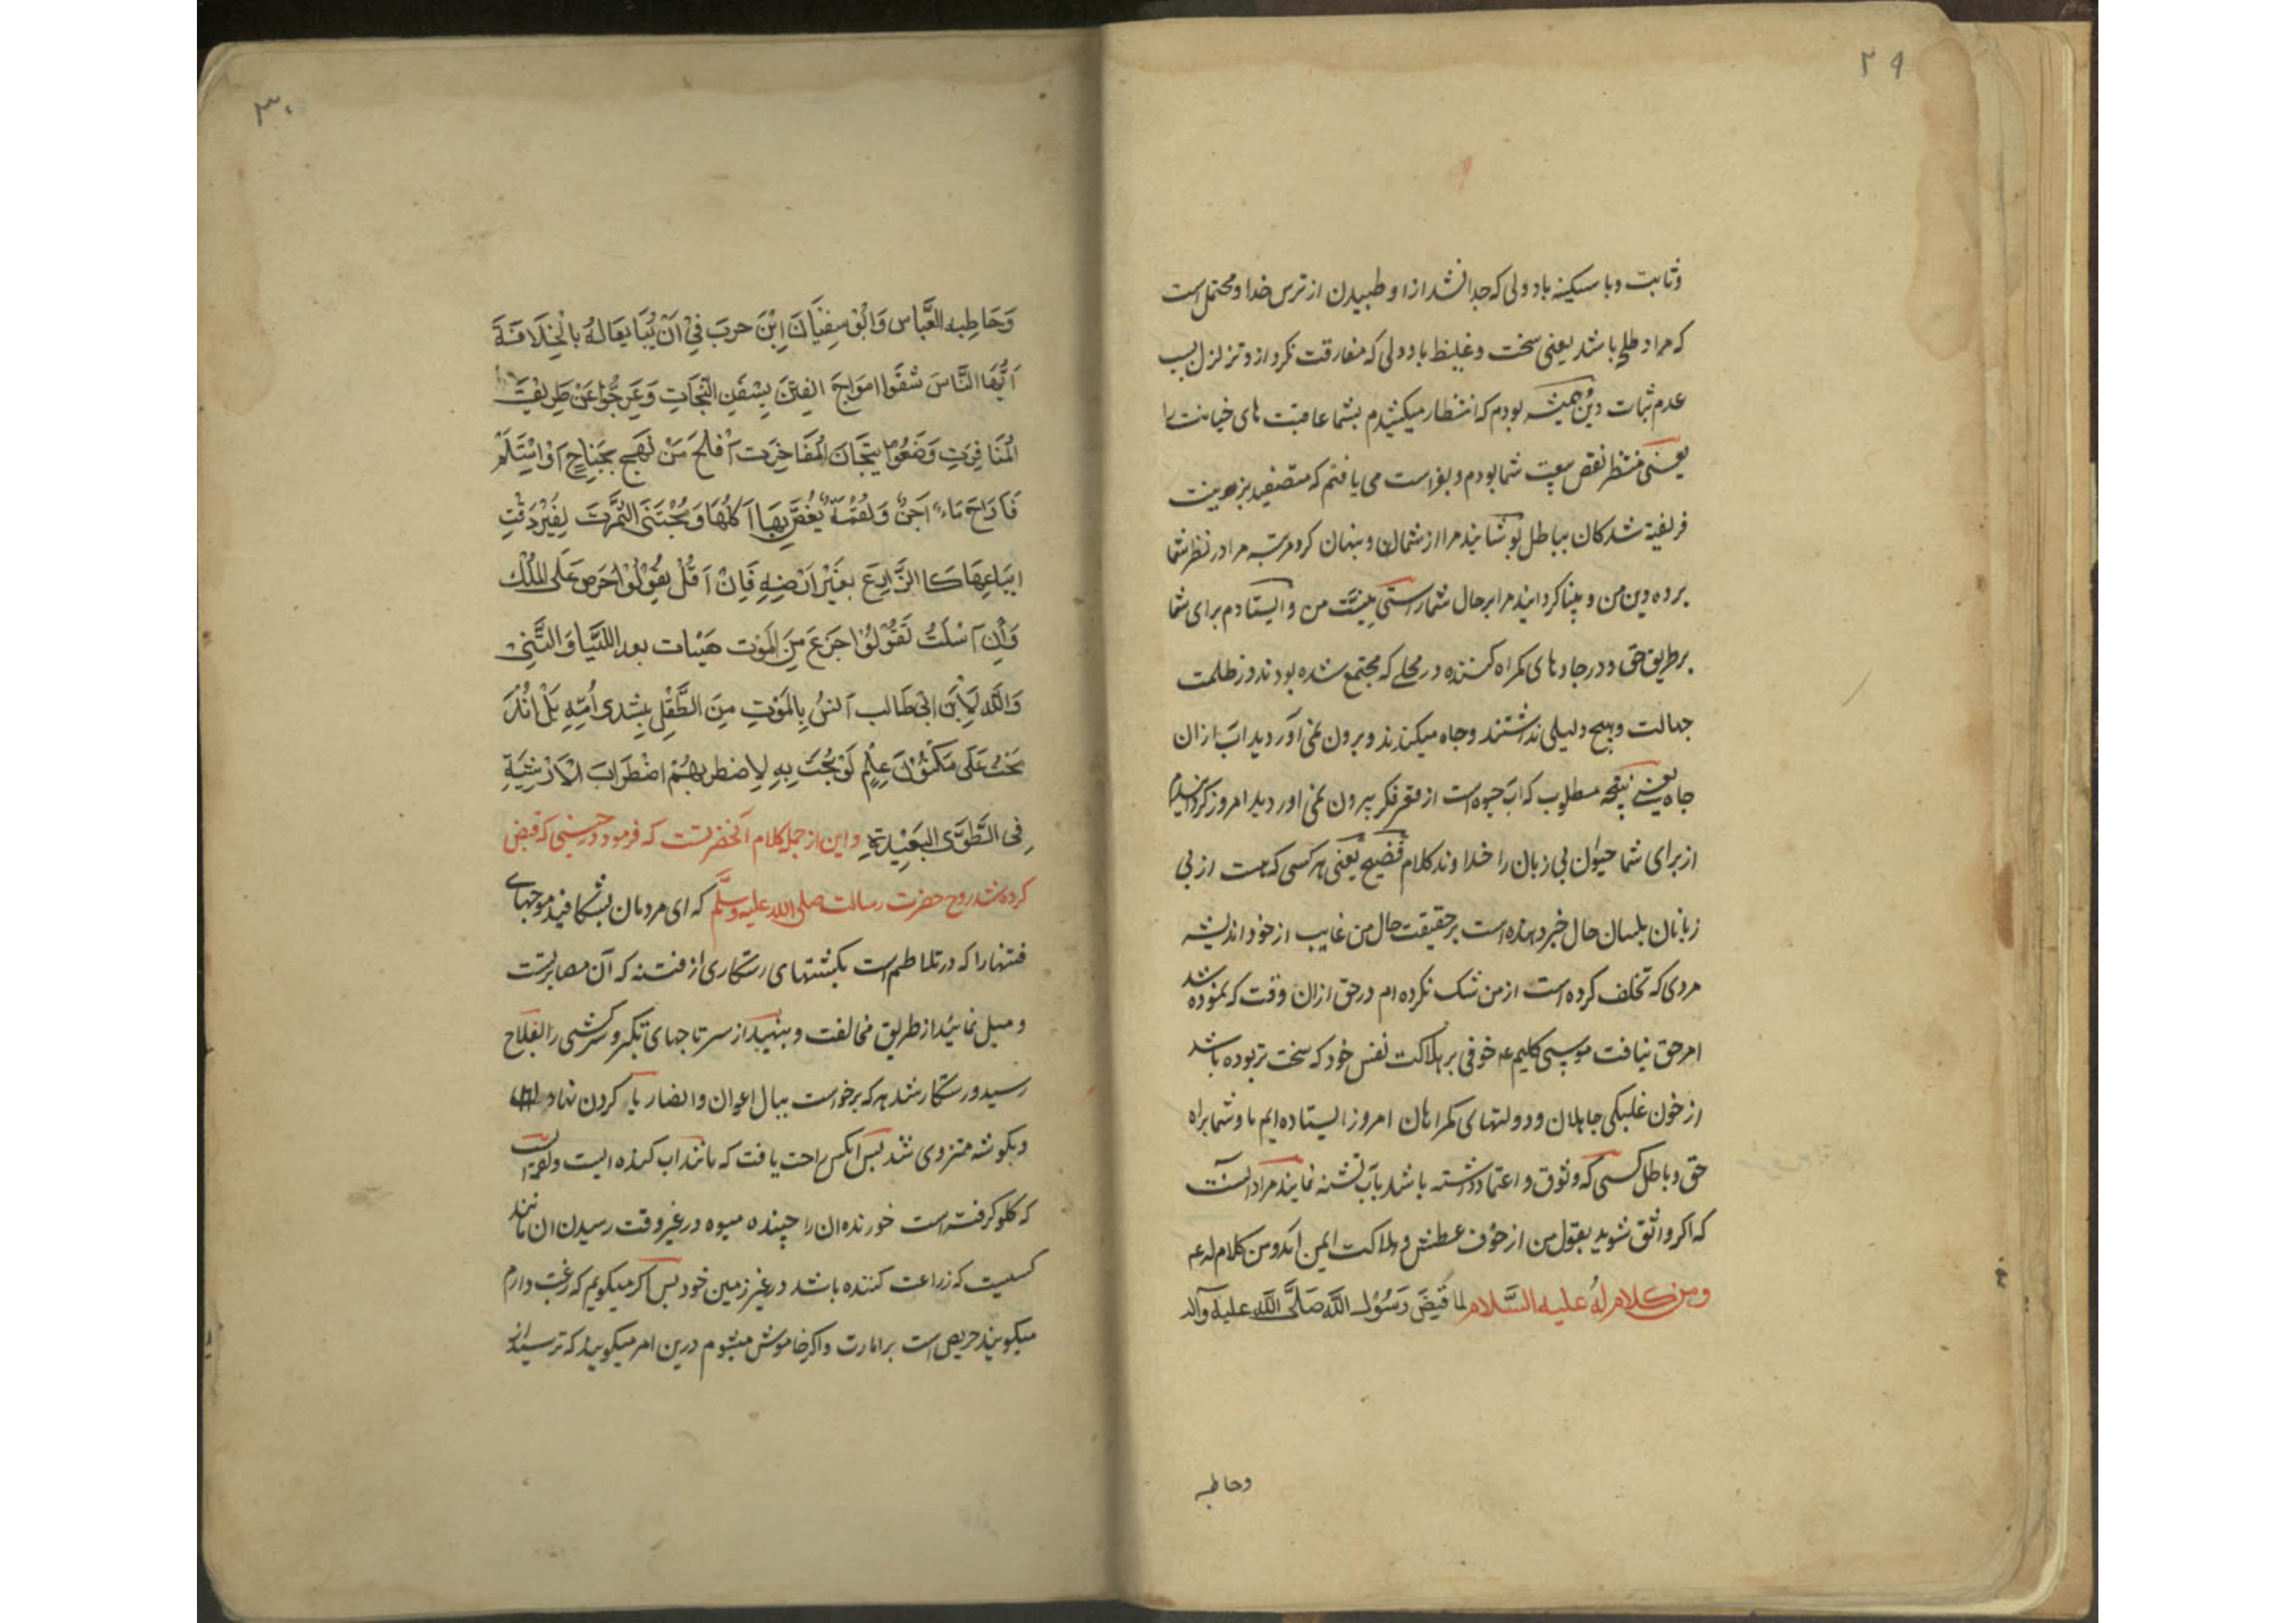 ۲۹
وثابت وبا سکینه باد دلی که جدا نشد ازاو طبیدن از ترس خدا ومحتمل است
که مراد طلح باشد یعنی سخت وغلیظ باد دلی که مفارقت نکرد ازو تزلزل بسبب
عدم ثبات دین وهمیشه بودم که انتظار میکشیدم بشما عاقبت های خیانت را
یعنی منتظر نقص بیعت شما بودم و بفراست می یافتم که متصفید بزینت
فریفته شدکان بباطل پوشانید مرا از شمایان وپنهان کرد مرتبه مرا در نظر شما
پرده دین من و بینا کردانید مرا برحال شما راستی نیت من وایستادم برای شما
برطریق حق ودر جادهای کمراه کننده در محلی که مجتمع شده بودند در ظلمت
جهالت وهیچ دلیلی نداشتند وچاه میکندند وبرون نمی آوردید اب ازان
چاه یعنی نتیجه مطلوب که اب حیوه است از قعر فکر بیرون نمی اوردید امروز کردانیدم
از برای شما حیوان بی زبان را خداوند کلام فصیح یعنی هر کسی که هست از بی
زبانان بلسان حال خبر دهنده است برحقیقت حال من غایب از خود اندیشه
مردی که تخلف کرده است از من شک نکرده ام در حق ازان وقت که نموده شد
امر حق نیافت موسی کلیم عم خوفی بر هلاکت نفس خود که سخت تر بوده باشد
از خون غلبکی جاهلان ودولتهای کمراهان امروز ایستاده ایم ما وشما براه
حق وباطل کسی که وثوق واعتماد داشته باشد بآب تشنه نمایند مراد انست
که اکر واثق شوید بقول من از خوف عطش وهلاکت ایمن اید ومن کلام له عم
ومن کلام له علیه السلام لما قبض رسول الله صلی الله علیه وآله
وخاطبه
۳۰
وَخَاطِبه العَبَّاس وَابُو سفیَانَ اِبْنَ حربَ فِیْ اَنْ یُبَایعَالهُ بالْخِلَافَةَ
اَیُّهَا النَّاسَ شُقُوا امواجَ الفِتَنَ بِسُفُنِ النَّجَاتِ وَعَرِّجُوا عَنْ طَرِیْقَتِ
المُنَافِرَتِ وَضَعُوْا تِیْجَانَ المُفَاخِرَت اَفْلَحَ مَنْ نَهَجَ بِجَنَاحٍ اَوْ اسْتَلَمَ
فَاَرَاحَ مَاءٌ اَجَنٌ وَلقمَةٌ یُغَصُّ بِهَا اٰکِلُهَا وَمُجْتَنَی الثَّمَرَتَ لِغَیْرِ وَقْتِ
ایناعِهَا کَا الزَّارِعَ بِغَیْرِ اَرْضِهِ فَاِنْ اَقُلْ یقُوْلُوْا حَرَصَ عَلَی المُلْک
وَاِنِ اسْکُتُ یَقُوْلُوْا جَزَعَ مِنَ المَوْت هَیْهات بعد اللتَّیا وَالتَّنِیْ
وَاللّٰه لَاِبْنَ ابی طَالب اٰنسُ بِالمَوْتِ مِنَ الطِّفْلِ بِثدی اُمِّهِ بَلْ اندَ
مَجْتُ عَلَی مَکْنُوْنَ عِلْمٍ لَوْ بُحْتُ بِهِ لِاضطربْتُمْ اضْطِرَابَ الْاَرْشِیَةِ
فِی الطَّوِیَّ البَعِیْدَةِ واین از جمله کلام آنحضرتست که فرمود در حینی که قبض
کرده شد روح حضرت رسالت صلی الله علیه وسلّم که ای مردمان بشکافید موجهای
فتنها را که در تلاطم است بکشتیهای رستکاری از فتنه که آن مصابرتست
ومیل نمائید از طریق مخالفت وبنهید از سر تاجهای تکبر وسرکشی را بفلاح
رسید ورستکار شد هرکه برخواست ببال اعوان وانصار یا کردن نهاد
وبکوشه منزوی شد پس آنکس راحت یافت که مانند اب کنده ایست ولقمه ایست
که کلو کرفته است خورنده ان را چیننده میوه در غیر وقت رسیدن ان مانند
کسیست که زراعت کننده باشد در غیر زمین خود پس اکر میکویم که رغبت دارم
میکویند حریص است بر امارت واکر خاموش میشوم درین امر میکویند که ترسید از